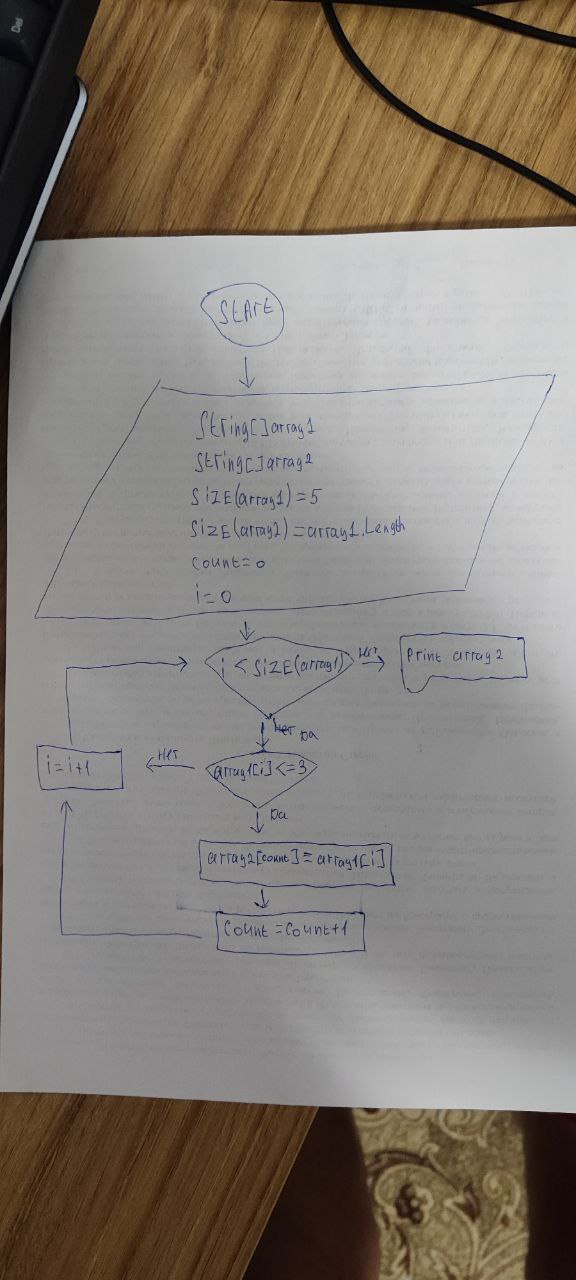 Del
START
String[]array1
String[]array2
SIZE(array1)=5
SIZE(array2)=array1.Length
count=0
i=0
i<SIZE(array1)
нет
Print array2
нет да
i=i+1
нет
array1[i]<=3
да
array2[count]=array1[i]
count=count+1